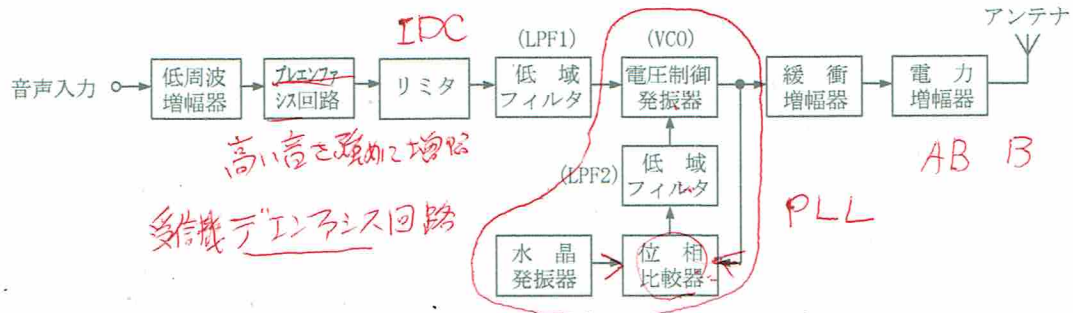 アンテナ
IDC
(LPF1)
(VCO)
音声入力
低周波
増幅器
プレエンファ
シス回路
リミタ
低域
フィルタ
電圧制御
発振器
緩衝
増幅器
電力
増幅器
高い音を強めに増幅
AB B
(LPF2)
低域
フィルタ
PLL
受信機 デエンファシス回路
水晶
発振器
位相
比較器